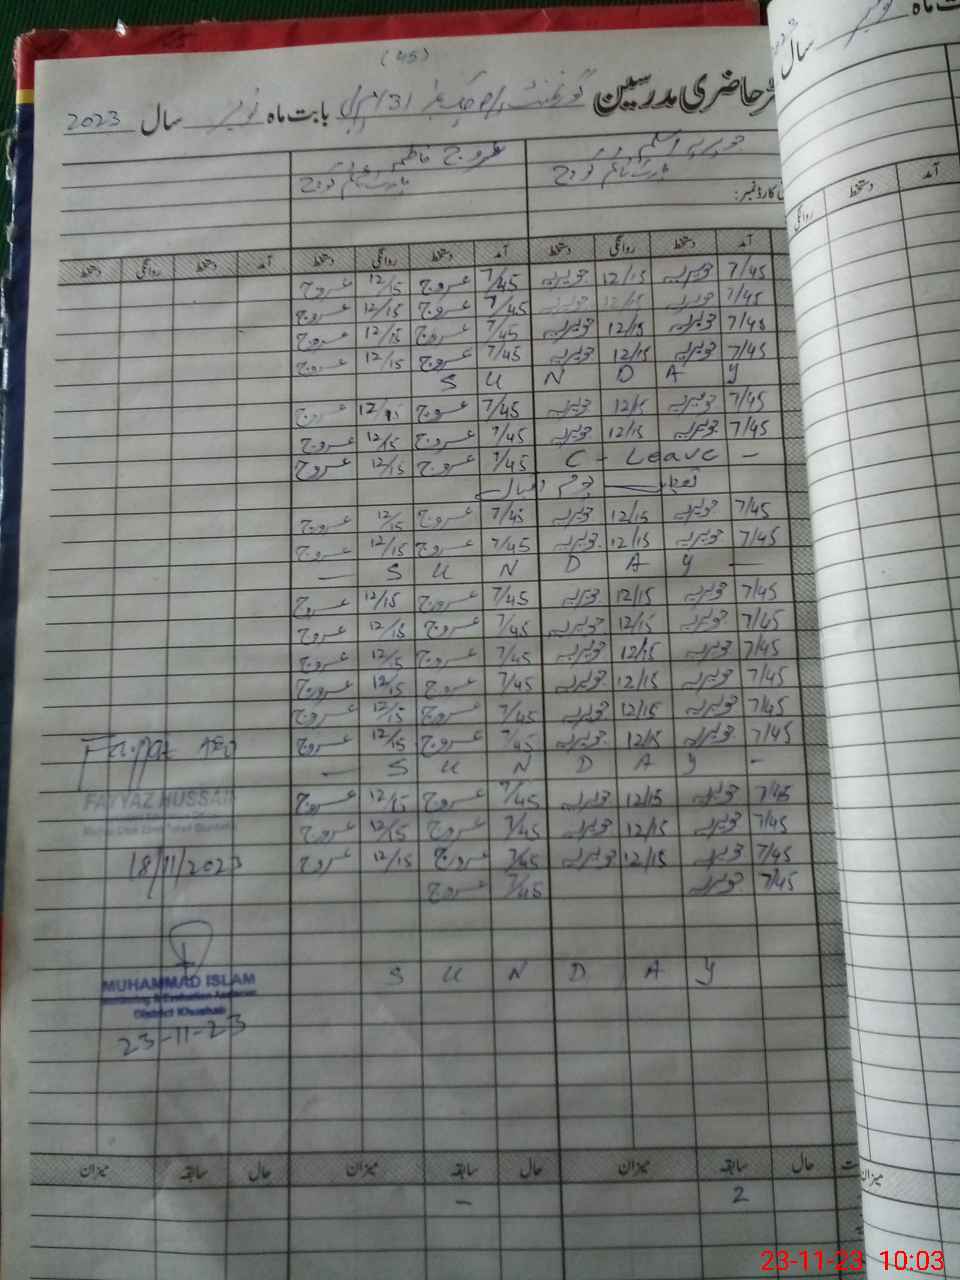 (45)
حاضری مدرسین گورنمنٹ 31 بابت ماہ نومبر سال 2023
عروج فاطمہ
آمد دستخط روانگی دستخط آمد دستخط روانگی دستخط آمد دستخط روانگی دستخط
7/45 جویریہ 12/15 جویریہ 7/45 عروج 12/15 عروج
7/45 جویریہ 12/15 جویریہ 7/45 عروج 12/15 عروج
7/45 جویریہ 12/15 جویریہ 7/45 عروج 12/15 عروج
7/45 جویریہ 12/15 جویریہ 7/45 عروج 12/15 عروج
S U N D A Y
7/45 جویریہ 12/15 جویریہ 7/45 عروج 12/15 عروج
7/45 جویریہ 12/15 جویریہ 7/45 عروج 12/15 عروج
C - Leave - 7/45 عروج 12/15 عروج
7/45 جویریہ 12/15 جویریہ 7/45 عروج 12/15 عروج
7/45 جویریہ 12/15 جویریہ 7/45 عروج 12/15 عروج
— S U N D A Y —
7/45 جویریہ 12/15 جویریہ 7/45 عروج 12/15 عروج
7/45 جویریہ 12/15 جویریہ 7/45 عروج 12/15 عروج
7/45 جویریہ 12/15 جویریہ 7/45 عروج 12/15 عروج
7/45 جویریہ 12/15 جویریہ 7/45 عروج 12/15 عروج
7/45 جویریہ 12/15 جویریہ 7/45 عروج 12/15 عروج
7/45 جویریہ 12/15 جویریہ 7/45 عروج 12/15 عروج
— S U N D A Y -
7/45 جویریہ 12/15 جویریہ 7/45 عروج 12/15 عروج
7/45 جویریہ 12/15 جویریہ 7/45 عروج 12/15 عروج
7/45 جویریہ 12/15 جویریہ 7/45 عروج 12/15 عروج
7/45 جویریہ 7/45 عروج
S U N D A Y
AEO
FAYYAZ HUSSAIN
18/11/2023
MUHAMMAD ISLAM
Monitoring & Evaluation Assistant
District Khushab
23-11-23
حال سابقہ میزان حال سابقہ میزان حال سابقہ میزان
2 -
ماہ نومبر
سال
آمد دستخط روانگی
میزان
23-11-23 10:03